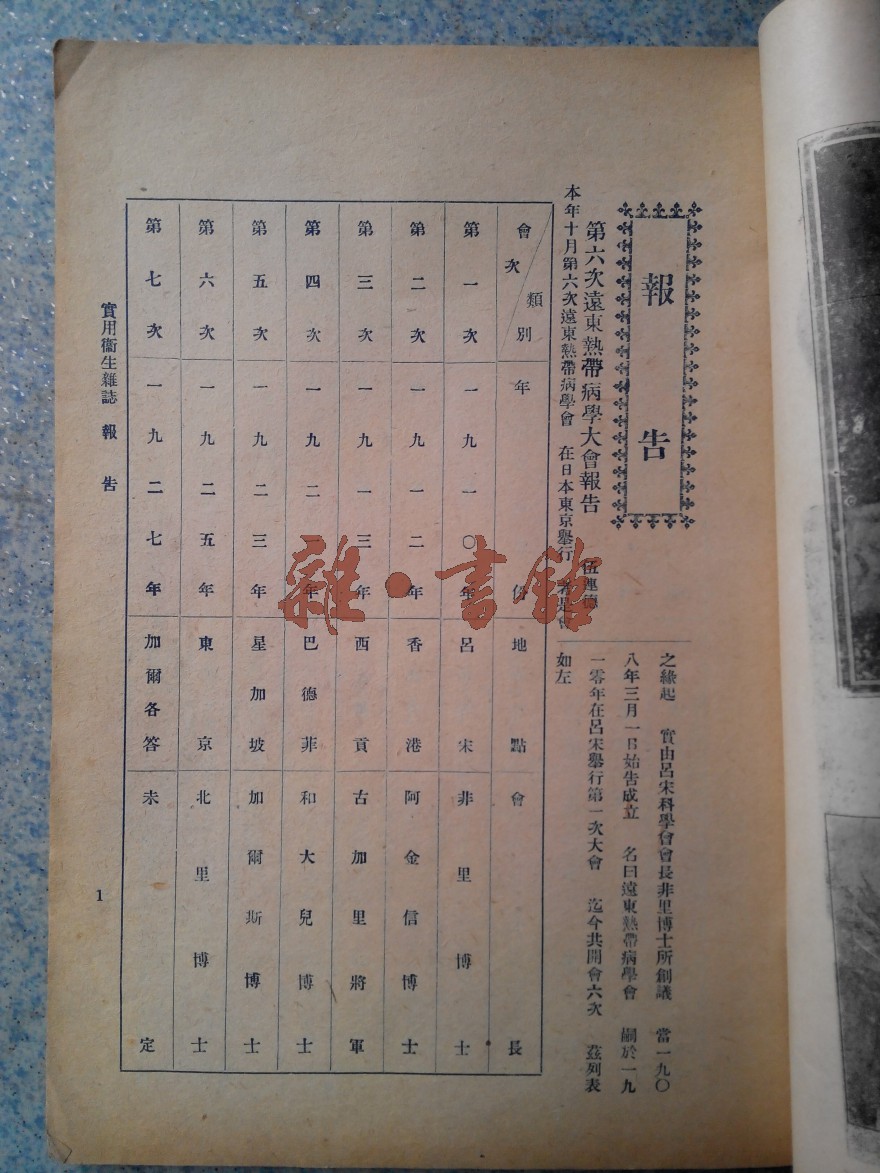 報告
第六次遠東熱帶病學大會報告 伍連德
本年十月第六次遠東熱帶病學會 在日本東京舉行 考是會
之緣起 實由呂宋科學會會長非里博士所創議 當一九〇
八年三月一日始告成立 名曰遠東熱帶病學會 嗣於一九
一零年在呂宋舉行第一次大會 迄今共開會六次 茲列表
如左
會次 類別 年份 地點 會長
第一次 一九一〇年 呂宋 非里博士
第二次 一九一二年 香港 阿金信博士
第三次 一九一三年 西貢 古加里將軍
第四次 一九二一年 巴德菲 和大兒博士
第五次 一九二三年 星加坡 加爾斯博士
第六次 一九二五年 東京 北里博士
第七次 一九二七年 加爾各答 未定
實用衞生雜誌 報告
1
雜·書館